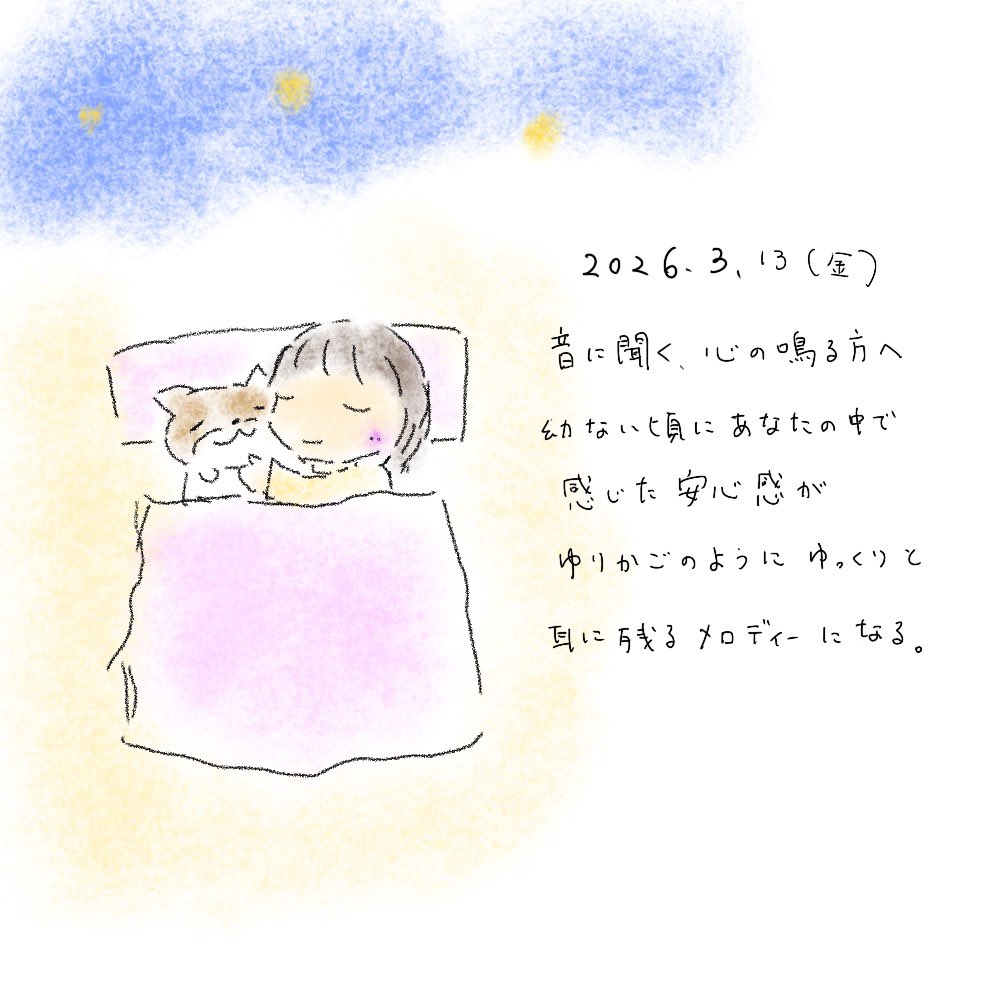 2026.3.13(金)
音に聞く、心の鳴る方へ
幼ない頃にあなたの中で
感じた安心感が
ゆりかごのようにゆっくりと
耳に残るメロディーになる。